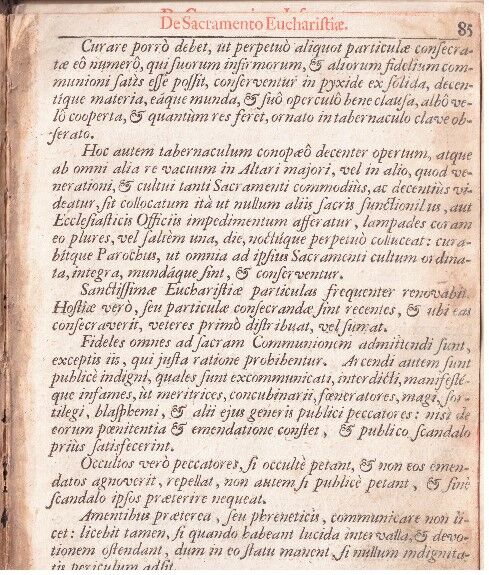 De Sacramento Euchariſtiæ. 85
Curare porrò debet, ut perpetuò aliquot particulæ conſecra-
tæ eô numerô, qui ſuorum infirmorum, & aliorum fidelium com-
munioni ſatìs eſſe poſſit, conſerventur in pyxide ex ſolida, decen-
tique materia, eáque munda, & ſuô operculô bene clauſa, albô ve-
lô cooperta, & quantùm res feret, ornato in tabernaculo clave ob-
ſerato.
Hoc autem tabernaculum conopæô decenter opertum, atque
ab omni alia re vacuum in Altari majori, vel in alio, quod ve-
nerationi, & cultui tanti Sacramenti commodiùs, ac decentiùs vi-
deatur, ſit collocatum ità ut nullum aliis ſacris functionibus, aut
Eccleſiaſticis Officiis impedimentum afferatur, lampades coram
eo plures, vel ſaltèm una, die, noctúque perpetuò colluceat: cura-
bitque Parochus, ut omnia ad ipſius Sacramenti cultum ordina-
ta, integra, mundáque ſint, & conſerventur.
Sanctiſſimæ Euchariſtiæ particulas frequenter renovabit.
Hoſtiæ verò, ſeu particulæ conſecrandæ ſint recentes, & ubi eas
conſecraverit, veteres primò diſtribuat, vel ſumat.
Fideles omnes ad ſacram Communionem admittendi ſunt,
exceptis iis, qui juſta ratione prohibentur. Arcendi autem ſunt
publicè indigni, quales ſunt excommunicati, interdicti, manifeſté-
que infames, ut meritrices, concubinarii, fœneratores, magi, ſor-
tilegi, blaſphemi, & alii ejus generis publici peccatores: niſi de
eorum pœnitentia & emendatione conſtet, & publico ſcandalo
priùs ſatisfecerint.
Occultos verò peccatores, ſi occultè petant, & non eos emen-
datos agnoverit, repellat, non autem ſi publicè petant, & ſinè
ſcandalo ipſos præterire nequeat.
Amentibus præterea, ſeu phreneticis, communicare non li-
cet: licebit tamen, ſi quando habeant lucida intervalla, & devo-
tionem oſtendant, dum in eo ſtatu manent, ſi nullum indignita-
tis periculum adſit.